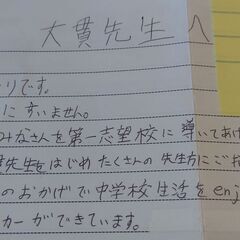 大貫先生へ
りです。
に すいません。
みなさんを第一志望校に導いてあげ
先生をはじめ たくさんの先生方にご
のおかげで中学校生活をenj
カーができています。